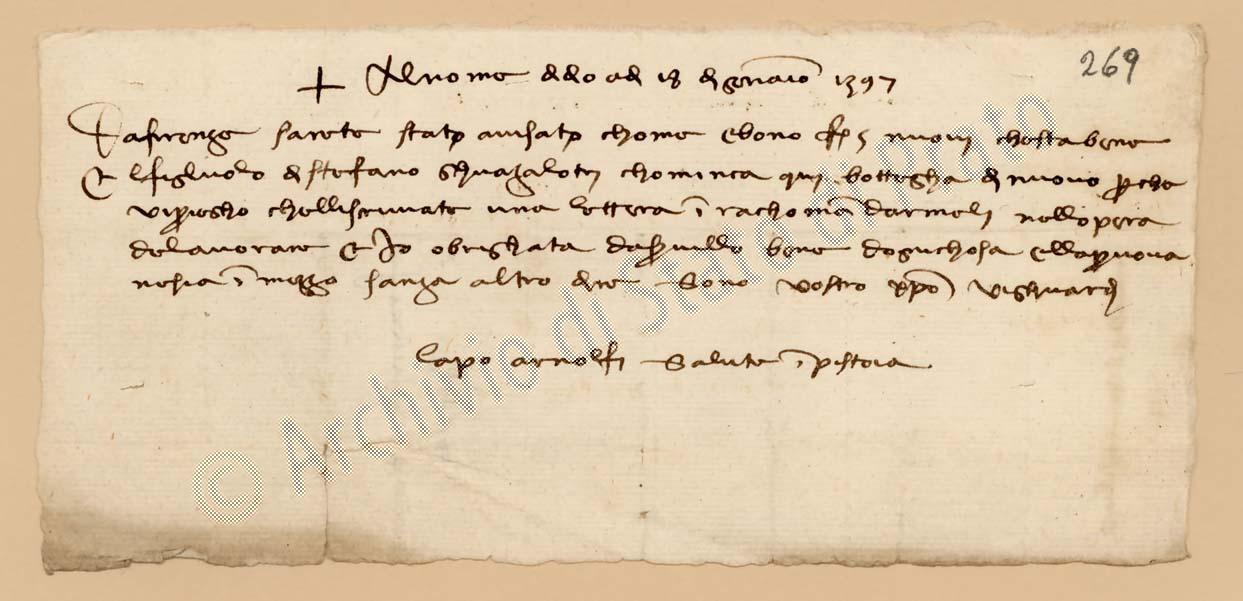 269
+ Al nome ddo ad 18 d gennaio 1397
Da firenze sarete stato avisato chome ebono nuovi chostabene
E lfigluolo d stefano ghuazaloti chominca qui bottegha d nuovo p che
vi priegho chelliscrivate una lettera i rachoman darmeli nellopera
delavorare E io obrighata bene dognichosa
i mezzo sanza altro dire Sono vostro vi ghuardi
lapo arnolfi Salute i pistoia
© Archivio di Stato di Prato